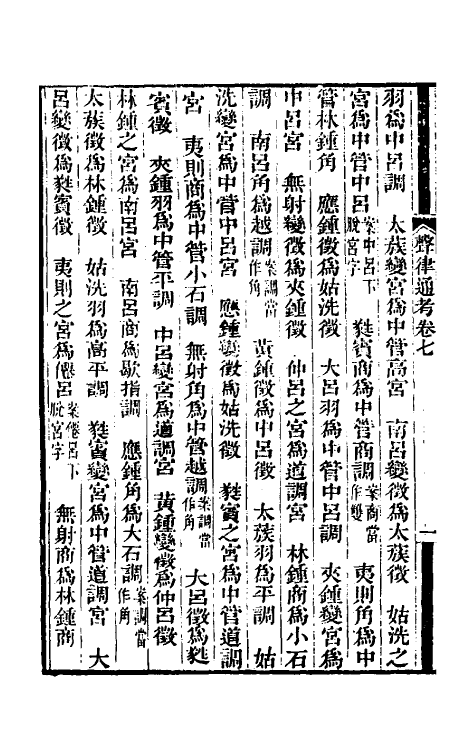 羽爲中呂調　太族變宮爲中管高宮　南呂變徵爲太族徵　姑洗之
宮爲中管中呂案中呂下脫宮字　蕤賓商爲中管商調案商當作雙　夷則角爲中
管林鍾角　應鍾徵爲姑洗徵　大呂羽爲中管中呂調　夾鍾變宮爲
中呂宮　無射變徵爲夾鍾徵　仲呂之宮爲道調宮　林鍾商爲小石
調　南呂角爲越調案調當作角　黃鍾徵爲中呂徵　太族羽爲平調　姑
洗變宮爲中管中呂宮　應鍾變徵爲姑洗徵　蕤賓之宮爲中管道調
宮　夷則商爲中管小石調　無射角爲中管越調案調當作角　大呂徵爲蕤
賓徵　夾鍾羽爲中管平調　中呂變宮爲道調宮　黃鍾變徵爲仲呂徵
林鍾之宮爲南呂宮　南呂商爲歇指調　應鍾角爲大石調案調當作角
太族徵爲林鍾徵　姑洗羽爲高平調　蕤賓變宮爲中管道調宮　大
呂變徵爲蕤賓徵　夷則之宮爲僊呂案僊呂下脫宮字　無射商爲林鍾商
聲律通考卷七
一